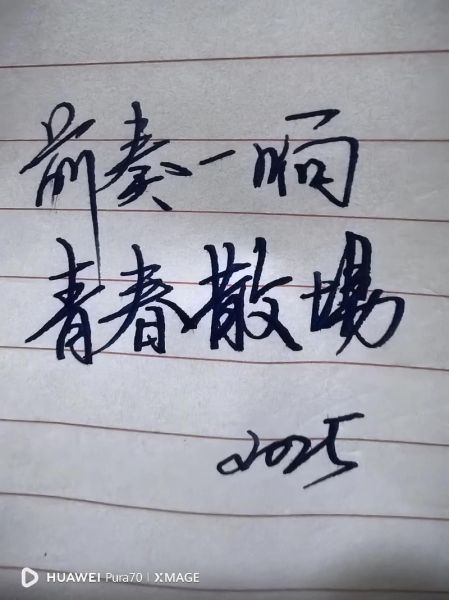 前奏一响
青春散場
2025
HUAWEI Pura70 | XMAGE